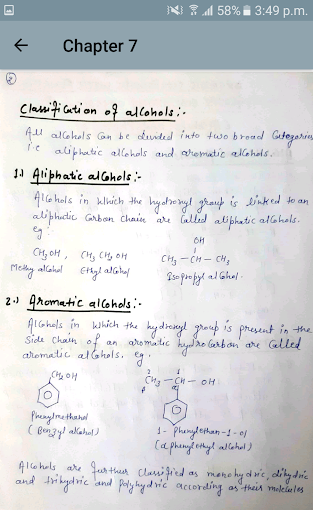 58% 3:49 p.m.
Chapter 7
2
Classification of alcohols :-
All alcohols can be divided into two broad Categories
i.e aliphatic alcohols and aromatic alcohols.
1.) Aliphatic alcohols :-
Alcohols in which the hydroxyl group is linked to an
aliphatic Carbon Chain are Called aliphatic alcohols.
eg :
OH
CH3OH , CH3 CH2 OH CH3 – CH – CH3
Methy alcohol Ethyl alcohol Isopropyl alcohol.
2.) Aromatic alcohols :-
Alcohols in which the hydroxyl group is present in the
Side Chain of an aromatic hydrocarbon are Called
aromatic alcohols. eg.
CH2OH
2 1
CH3 – CH – OH
β α
Phenylmethanol
( Benzyl alcohol ) 1- Phenylethan-1-ol
( α phenylethyl alcohol )
Alcohols are further Classified as monohydric, dihydric
and trihydric and Polyhydric according as their molecules